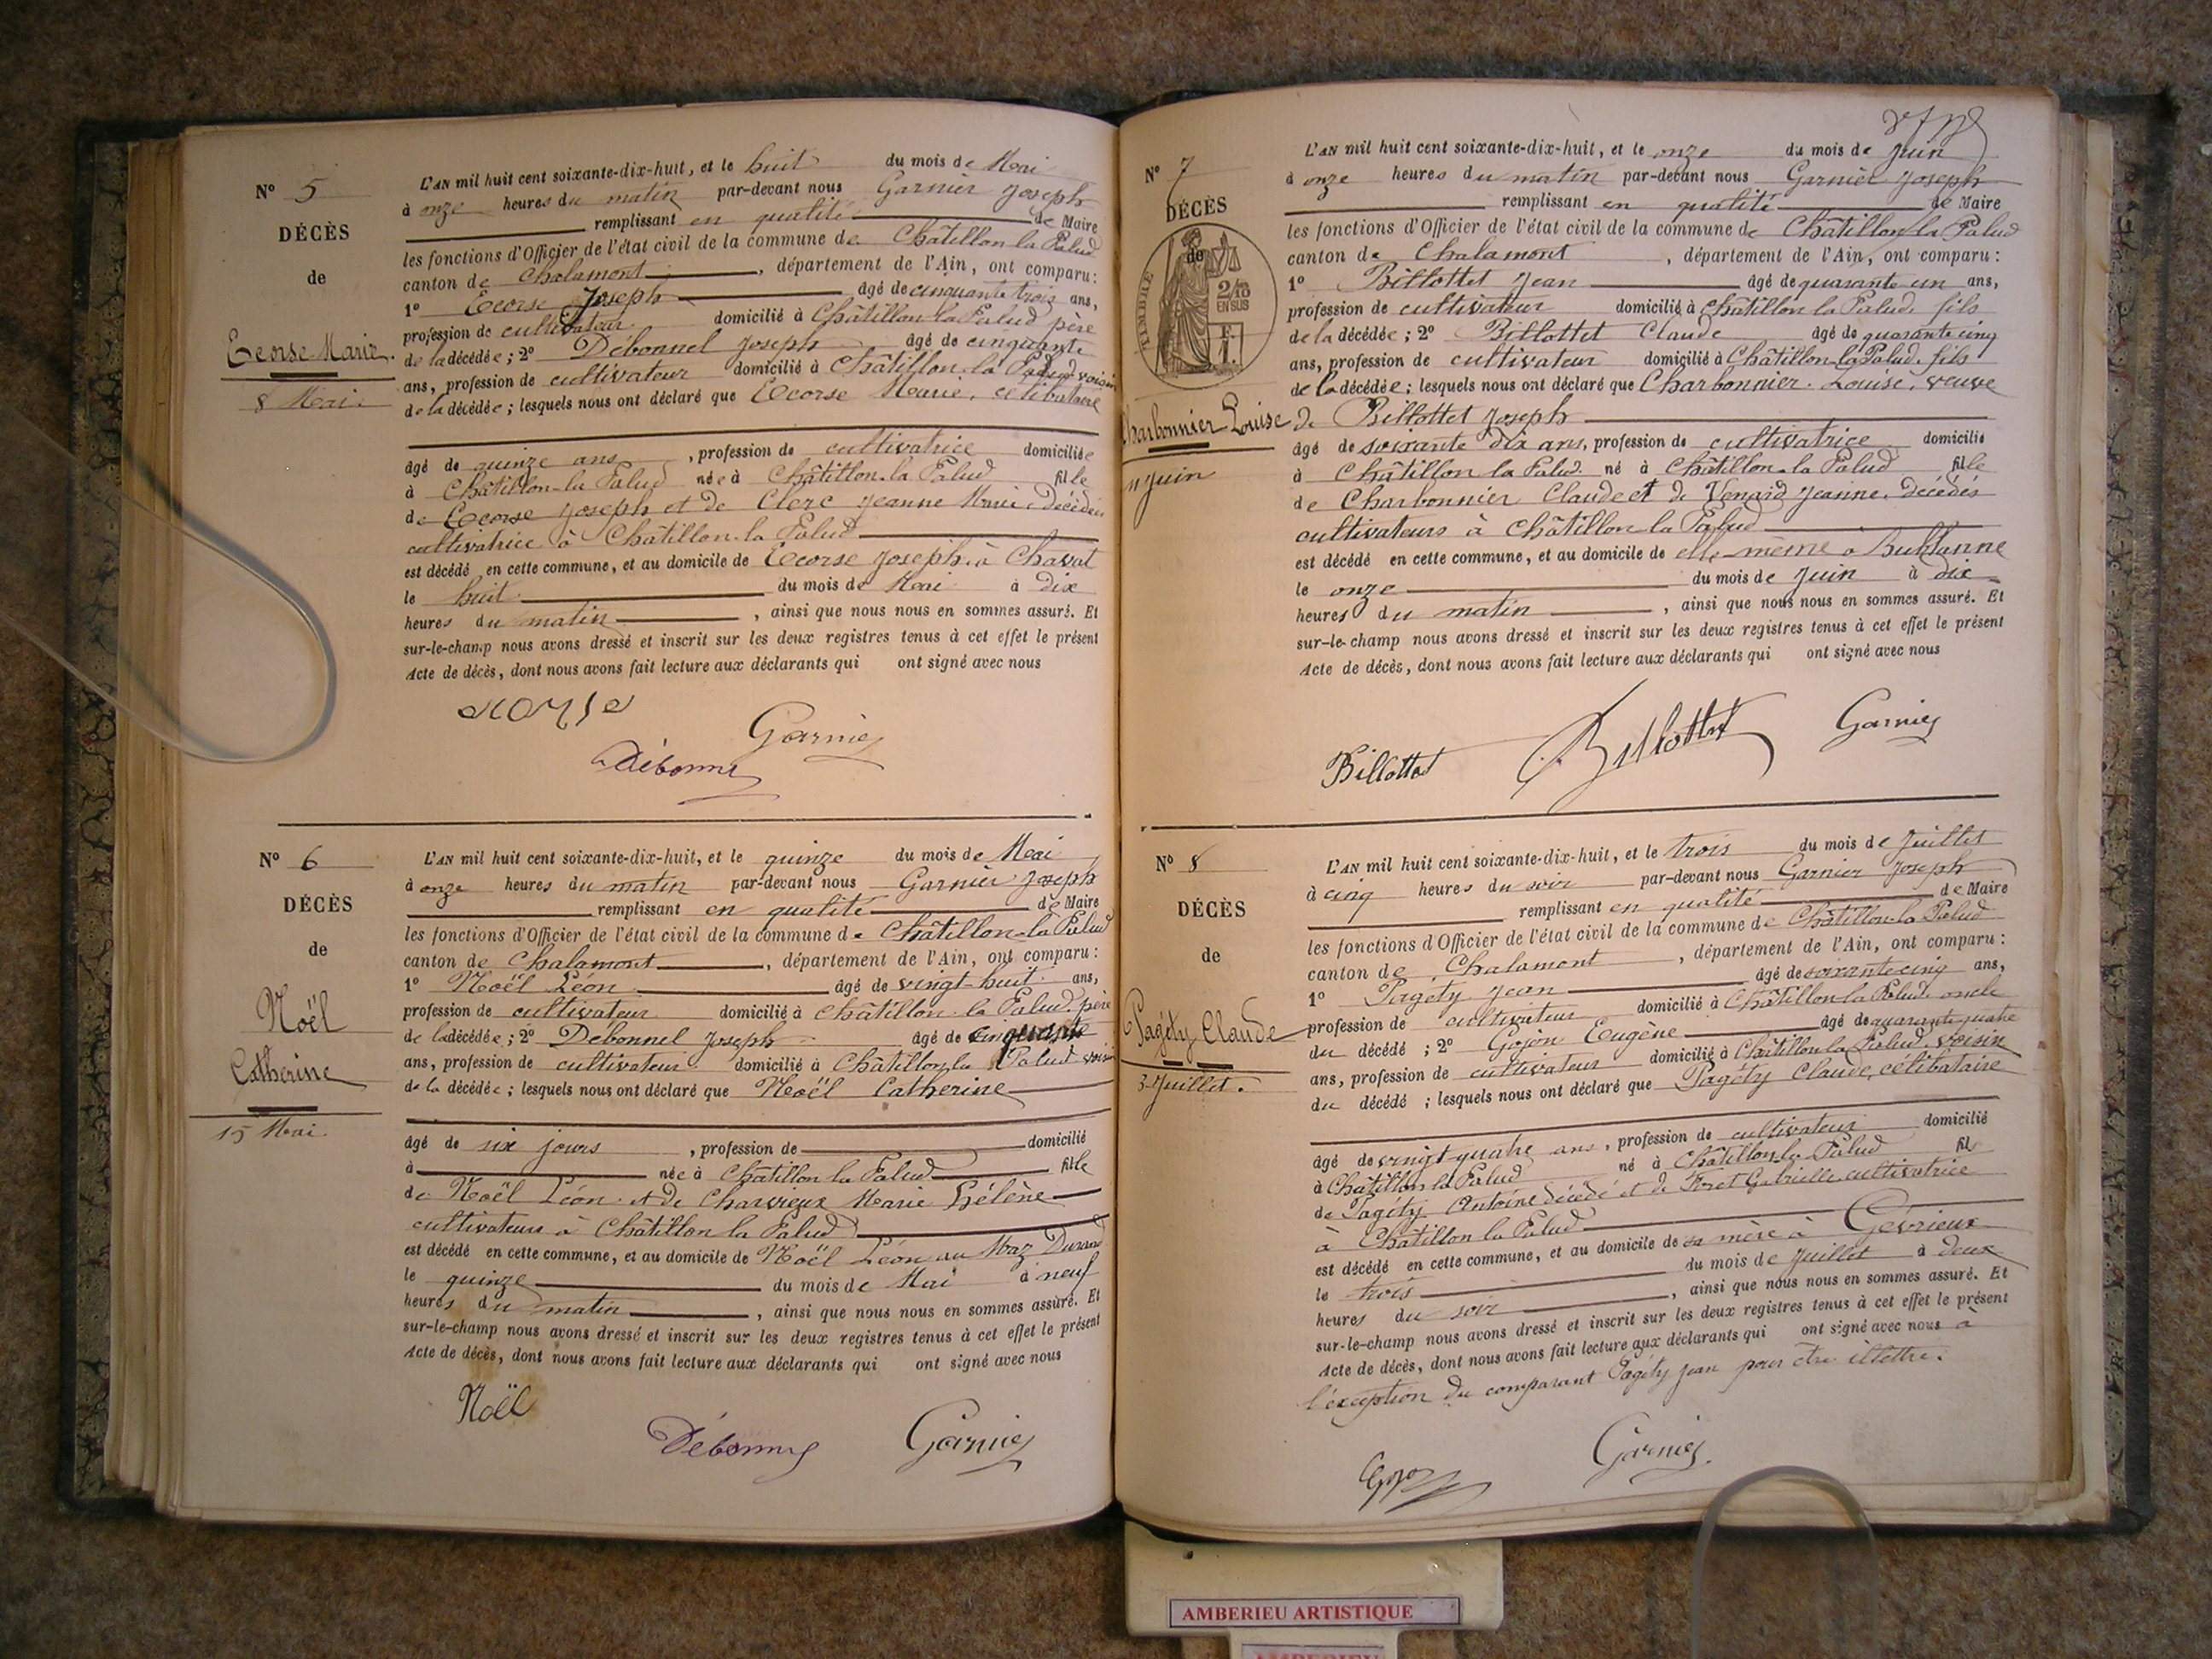 N° 5
DÉCÈS
de
Ecorse Marie.
8 Mai.
L'AN mil huit cent soixante-dix-huit, et le huit du mois de Mai
à onze heures du matin par-devant nous Garnier Joseph
remplissant en qualité de Maire
les fonctions d'Officier de l'état civil de la commune de Châtillon la Palud
canton de Chalamont, département de l'Ain, ont comparu:
1° Ecorse Joseph âgé de cinquante trois ans,
profession de cultivateur domicilié à Châtillon la Palud père
de la décédée; 2° Débonnel Joseph âgé de cinquante
ans, profession de cultivateur domicilié à Châtillon la Palud voisin
de la décédée; lesquels nous ont déclaré que Ecorse Marie, célibataire
âgé de quinze ans, profession de cultivatrice domiciliée
à Châtillon-la Palud née à Châtillon-la Palud fille
de Ecorse Joseph et de Clerc Jeanne Marie, décédée
cultivatrice à Châtillon-la Palud
est décédé en cette commune, et au domicile de Ecorse Joseph à Chavat
le huit du mois de Mai à dix
heures du matin, ainsi que nous nous en sommes assuré. Et
sur-le-champ nous avons dressé et inscrit sur les deux registres tenus à cet effet le présent
Acte de décès, dont nous avons fait lecture aux déclarants qui ont signé avec nous
Garnier
Débonnel
N° 6
DÉCÈS
de
Noël
Catherine
15 Mai.
L'AN mil huit cent soixante-dix-huit, et le quinze du mois de Mai
à onze heures du matin par-devant nous Garnier Joseph
remplissant en qualité de Maire
les fonctions d'Officier de l'état civil de la commune de Châtillon-la Palud
canton de Chalamont, département de l'Ain, ont comparu:
1° Noël Léon âgé de vingt-huit ans,
profession de cultivateur domicilié à Châtillon la Palud père
de la décédée; 2° Débonnel Joseph âgé de cinquante
ans, profession de cultivateur domicilié à Châtillon la Palud voisin
de la décédée; lesquels nous ont déclaré que Noël Catherine
âgé de six jours, profession de domicilié
à née à Châtillon la Palud fille
de Noël Léon et de Charvieux Marie Hélène
cultivateurs à Châtillon la Palud
est décédé en cette commune, et au domicile de Noël Léon au Maz Durand
le quinze du mois de Mai à neuf
heures du matin, ainsi que nous nous en sommes assuré. Et
sur-le-champ nous avons dressé et inscrit sur les deux registres tenus à cet effet le présent
Acte de décès, dont nous avons fait lecture aux déclarants qui ont signé avec nous
Noël
Débonnel Garnier
N° 7
DÉCÈS
de
TIMBRE
2/10
EN SUS
Charbonnier Louise
11 Juin
L'AN mil huit cent soixante-dix-huit, et le onze du mois de Juin
à onze heures du matin par-devant nous Garnier Joseph
remplissant en qualité de Maire
les fonctions d'Officier de l'état civil de la commune de Châtillon la Palud
canton de Chalamont, département de l'Ain, ont comparu:
1° Billottet Jean âgé de quarante un ans,
profession de cultivateur domicilié à Châtillon la Palud, fils
de la décédée; 2° Billottet Claude âgé de quarante cinq
ans, profession de cultivateur domicilié à Châtillon-la Palud, fils
de la décédée; lesquels nous ont déclaré que Charbonnier Louise, veuve
de Billottet Joseph
âgé de soixante dix ans, profession de cultivatrice domicilié
à Châtillon la Palud né à Châtillon-la Palud fille
de Charbonnier Claude et de Venard Jeanne, décédés
cultivateurs à Châtillon la Palud
est décédé en cette commune, et au domicile de elle-même à Bublanne
le onze du mois de Juin à dix
heures du matin, ainsi que nous nous en sommes assuré. Et
sur-le-champ nous avons dressé et inscrit sur les deux registres tenus à cet effet le présent
Acte de décès, dont nous avons fait lecture aux déclarants qui ont signé avec nous
Billottet Billottet Garnier
N° 8
DÉCÈS
de
Pagéty Claude
3 Juillet.
L'AN mil huit cent soixante-dix-huit, et le trois du mois de Juillet
à cinq heures du soir par-devant nous Garnier Joseph
remplissant en qualité de Maire
les fonctions d'Officier de l'état civil de la commune de Châtillon-la Palud
canton de Chalamont, département de l'Ain, ont comparu:
1° Pagéty Jean âgé de soixante cinq ans,
profession de cultivateur domicilié à Châtillon la Palud, oncle
du décédé; 2° Gojon Eugène âgé de quarante quatre
ans, profession de cultivateur domicilié à Châtillon la Palud, voisin
du décédé; lesquels nous ont déclaré que Pagéty Claude, célibataire
âgé de vingt quatre ans, profession de cultivateur domicilié
à Châtillon la Palud né à Châtillon-la Palud fils
de Pagéty Antoine décédé et de Gabrielle cultivatrice
à Châtillon la Palud
est décédé en cette commune, et au domicile de sa mère à Gévrieux
le trois du mois de Juillet à deux
heures du soir, ainsi que nous nous en sommes assuré. Et
sur-le-champ nous avons dressé et inscrit sur les deux registres tenus à cet effet le présent
Acte de décès, dont nous avons fait lecture aux déclarants qui ont signé avec nous à
l'exception du comparant Pagéty Jean pour être illettré.
Garnier
AMBERIEU ARTISTIQUE
AMBERIEU